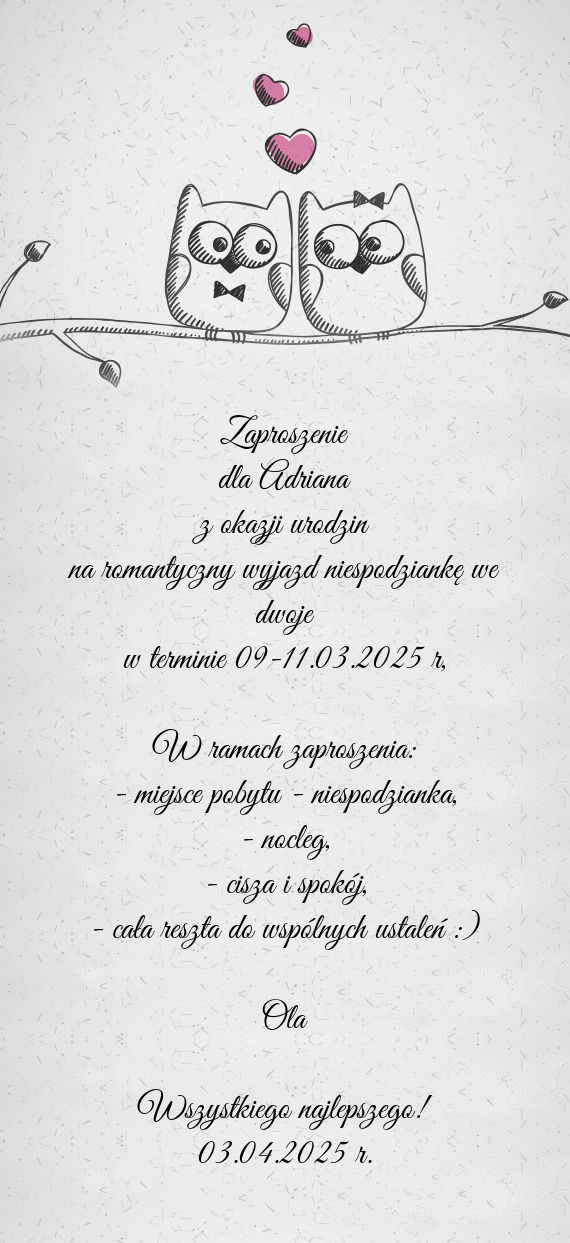 Zaproszenie
dla Adriana
z okazji urodzin
na romantyczny wyjazd niespodziankę we
dwoje
w terminie 09-11.03.2025 r,
W ramach zaproszenia:
- miejsce pobytu - niespodzianka,
- nocleg,
- cisza i spokój,
- cała reszta do wspólnych ustaleń :)
Ola
Wszystkiego najlepszego!
03.04.2025 r.